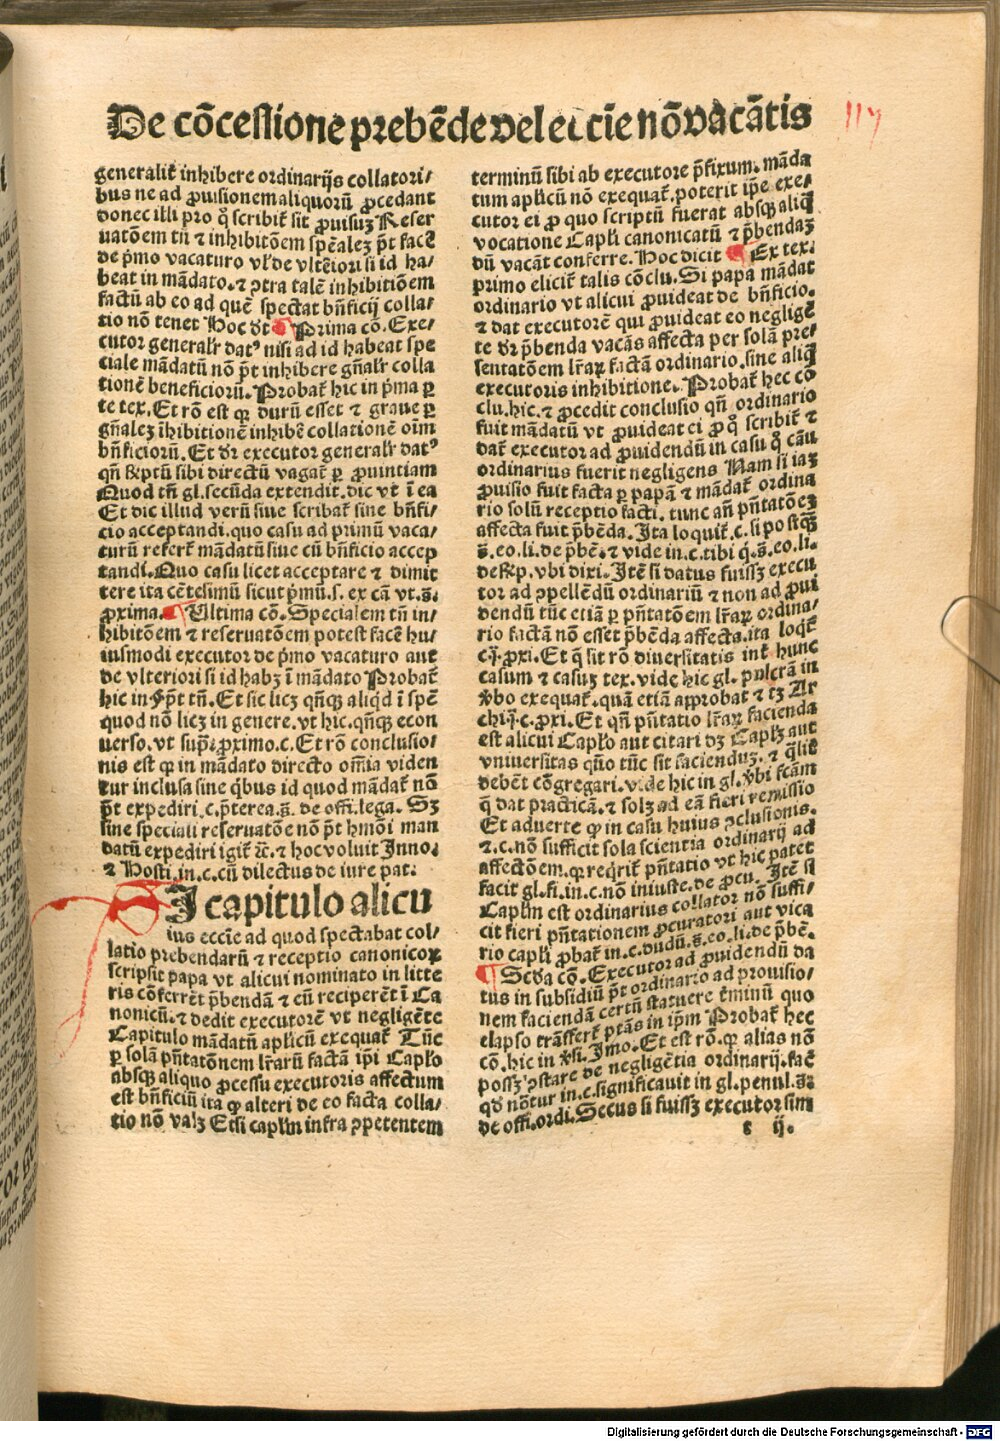 De cōcessione prebēde vel eccīe nō vacātis
117
generalit̄ inhibere ordinarijs collatori/
bus ne ad ꝓuisionem aliquorū ꝓcedant
donec illi pro q̊ scribit̄ sit ꝓuisuꝫ Reser
uatōem tn̄ ⁊ inhibitōem spēalez p̄t facē
de p̄mo vacaturo vl̓ de vlt̄eriori si id ha/
beat in mādato. ⁊ ꝯtra talē inhibitiōem
factū ab eo ad quē spectat bn̄ficij colla/
tio nō tenet Hoc d̄t Prima cō. Exe/
cutor generalr̄ datꝰ nisi ad id habeat spe
ciale mādatū nō p̄t inhibere gn̄alr̄ colla
tionē beneficiorū. Probat̄ hic in p̄ma ꝑ
te tex. Et rō est qꝛ durū esset ⁊ graue ꝑ
gn̄alez īhibitionē inhibē collationē oīm
bn̄ficiorū. Et dr̄ executor generalr̄ datꝰ
qn̄ scͥptū sibi directū vagat̄ ꝑ ꝓuintiam
Quod tn̄ gl. secūda extendit. dic vt ī ea
Et dic illud verū siue scribat̄ sine bn̄fi/
cio acceptandi. quo casu ad primū vaca/
turū refert̄ mādatū siue cū bn̄ficio accep
tandi. Quo casu licet acceptare ⁊ dimit
tere ita cētesimū sicut p̄mū. s. ex cā vt. s̄.
ꝓxima. Ultima cō. Specialem tn̄ in/
hibitōem ⁊ reseruatōem potest facē hu/
iusmodi executor de p̄mo vacaturo aut
de vlteriori si id habꝫ ī mādato Probat̄
hic in p̄t tn̄. Et sic licꝫ qn̄qꝫ aliqd ī spē
quod nō licꝫ in genere. vt hic. qn̄qꝫ econ
uerso. vt supͣ. ꝓximo. c. Et rō conclusio/
nis est qꝛ in mādato directo om̄ia viden
tur inclusa sine qͥbus id quod mādat̄ nō
p̄t expediri. c. p̄terea. s̄. de offi. lega. Sꝫ
sine speciali reseruatōe nō p̄t hmōi man
datū expediri igit̄ ⁊c̄. ⁊ hoc voluit Inno.
⁊ Hosti. in. c. cū dilectus de iure pat.
Si capitulo alicu
ius eccīe ad quod spectabat col/
latio prebendarū ⁊ receptio canonicoꝝ
scripsit papa vt alicui nominato in litte
ris cōferrēt p̄bendā ⁊ cū reciperēt ī Ca
nonicū. ⁊ dedit executorē vt negligēte
Capitulo mādatū aplicū exequat̄ Tūc
ꝑ solā pn̄tatōnem lr̄arū factā ipi Caplo
absqꝫ aliquo ꝓcessu executoris affectum
est bn̄ficiū ita qꝙ alteri de eo facta colla/
tio nō valꝫ Etsi caplm infra ꝯpetentem
terminū sibi ab executore p̄fixum. māda
tum aplicū nō exequat̄. poterit ip̄e exe/
cutor ei ꝓ quo scriptū fuerat absqꝫ aliq̄
vocatione Capl̓i canonicatū ⁊ p̄bendaꝫ
dū vacāt conferre. Hoc dicit Ex tex.
primo elicit̄ talis cōclu. Si papa mādat
ordinario vt alicui ꝓuideat de bn̄ficio.
⁊ dat executorē qui ꝓuideat eo negligē
te dr̄ p̄benda vacās affecta per solā pre/
sentatōem lr̄aꝝ factā ordinario. sine aliq̄
executoris inhibitione. Probat̄ hec cō
clu. hic. ⁊ ꝓcedit conclusio qn̄ ordinario
fuit mādatū vt ꝓuideat ei ꝓ q̊ scribit̄ ⁊
dat̄ executor ad ꝓuidendū in casu q̊ cāu
ordinarius fuerit negligens Nam si iaꝫ
ꝓuisio fuit facta ꝑ papā ⁊ mādat̄ ordina
rio solū receptio facti. tunc an̄ pn̄tatōeꝫ
affecta fuit p̄bēda. Ita loquit̄. c. si postqꝫ
s̄. eo. li. de p̄bē. ⁊ vide in. c. tibi q̊. s̄. eo. li.
de rescͥp. vbi dixi. Itē si datus fuissꝫ execu
tor ad ꝯpellēdū ordinariū ⁊ non ad ꝓui
dendū tūc etiā ꝑ pn̄tatōem lr̄aꝝ ordina/
rio factā nō esset p̄bēda affecta. ita loqt̄
c. j. ꝓxi. Et q̄ sit rō diuersitatis int̄ hunc
casum ⁊ casuꝫ tex. vide hic gl. pulcrā in
v̓bo exequat̄. quā etiā approbat ⁊ tꝫ Ar
chi. j. c. ꝓxi. Et qn̄ pn̄tatio lr̄aꝝ facienda
est alicui Caplo aut citari dꝫ Caplꝫ aut
vniuersitas quō tūc sit faciendūꝫ. ⁊ q̄lit̄
debēt cōgregari. vide hic in gl. v̓bi fcām
q̄ dat practicā. ⁊ solꝫ ad eā fieri remissio
Et aduerte qꝙ in casu huius ꝯclusionis.
⁊. c. nō sufficit sola scientia ordinarij ad
affectōem. qꝛ reqrit̄ pn̄tatio vt hic patet
facit gl. fi. in. c. nō iniuste. de ꝓcu. Itē si
Caplm est ordinarius collator nō suffi/
cit fieri pn̄tationem ꝓcuratori aut vica
rio capl̓i ꝓbat̄ in. c. dudū. s̄. eo. li. de p̄bē.
Scd̄a cō. Executor ad ꝓuidendū da
tus in subsidiū p̄t ordinario ad prouisio/
nem faciendā certū statuere t̓minū quo
elapso trāsfert̄ ptās in ip̄m Probat̄ hec
cō. hic in v̓si. Imo. Et est rō. qꝛ alias nō
possꝫ ꝯstare de negligētia ordinarij. fac̄
qd̄ nōtur in. c. significauit in gl. penul. s̄.
de offi. ordi. Secus si fuissꝫ executor sim
t ij.
Digitalisierung gefördert durch die Deutsche Forschungsgemeinschaft - DFG